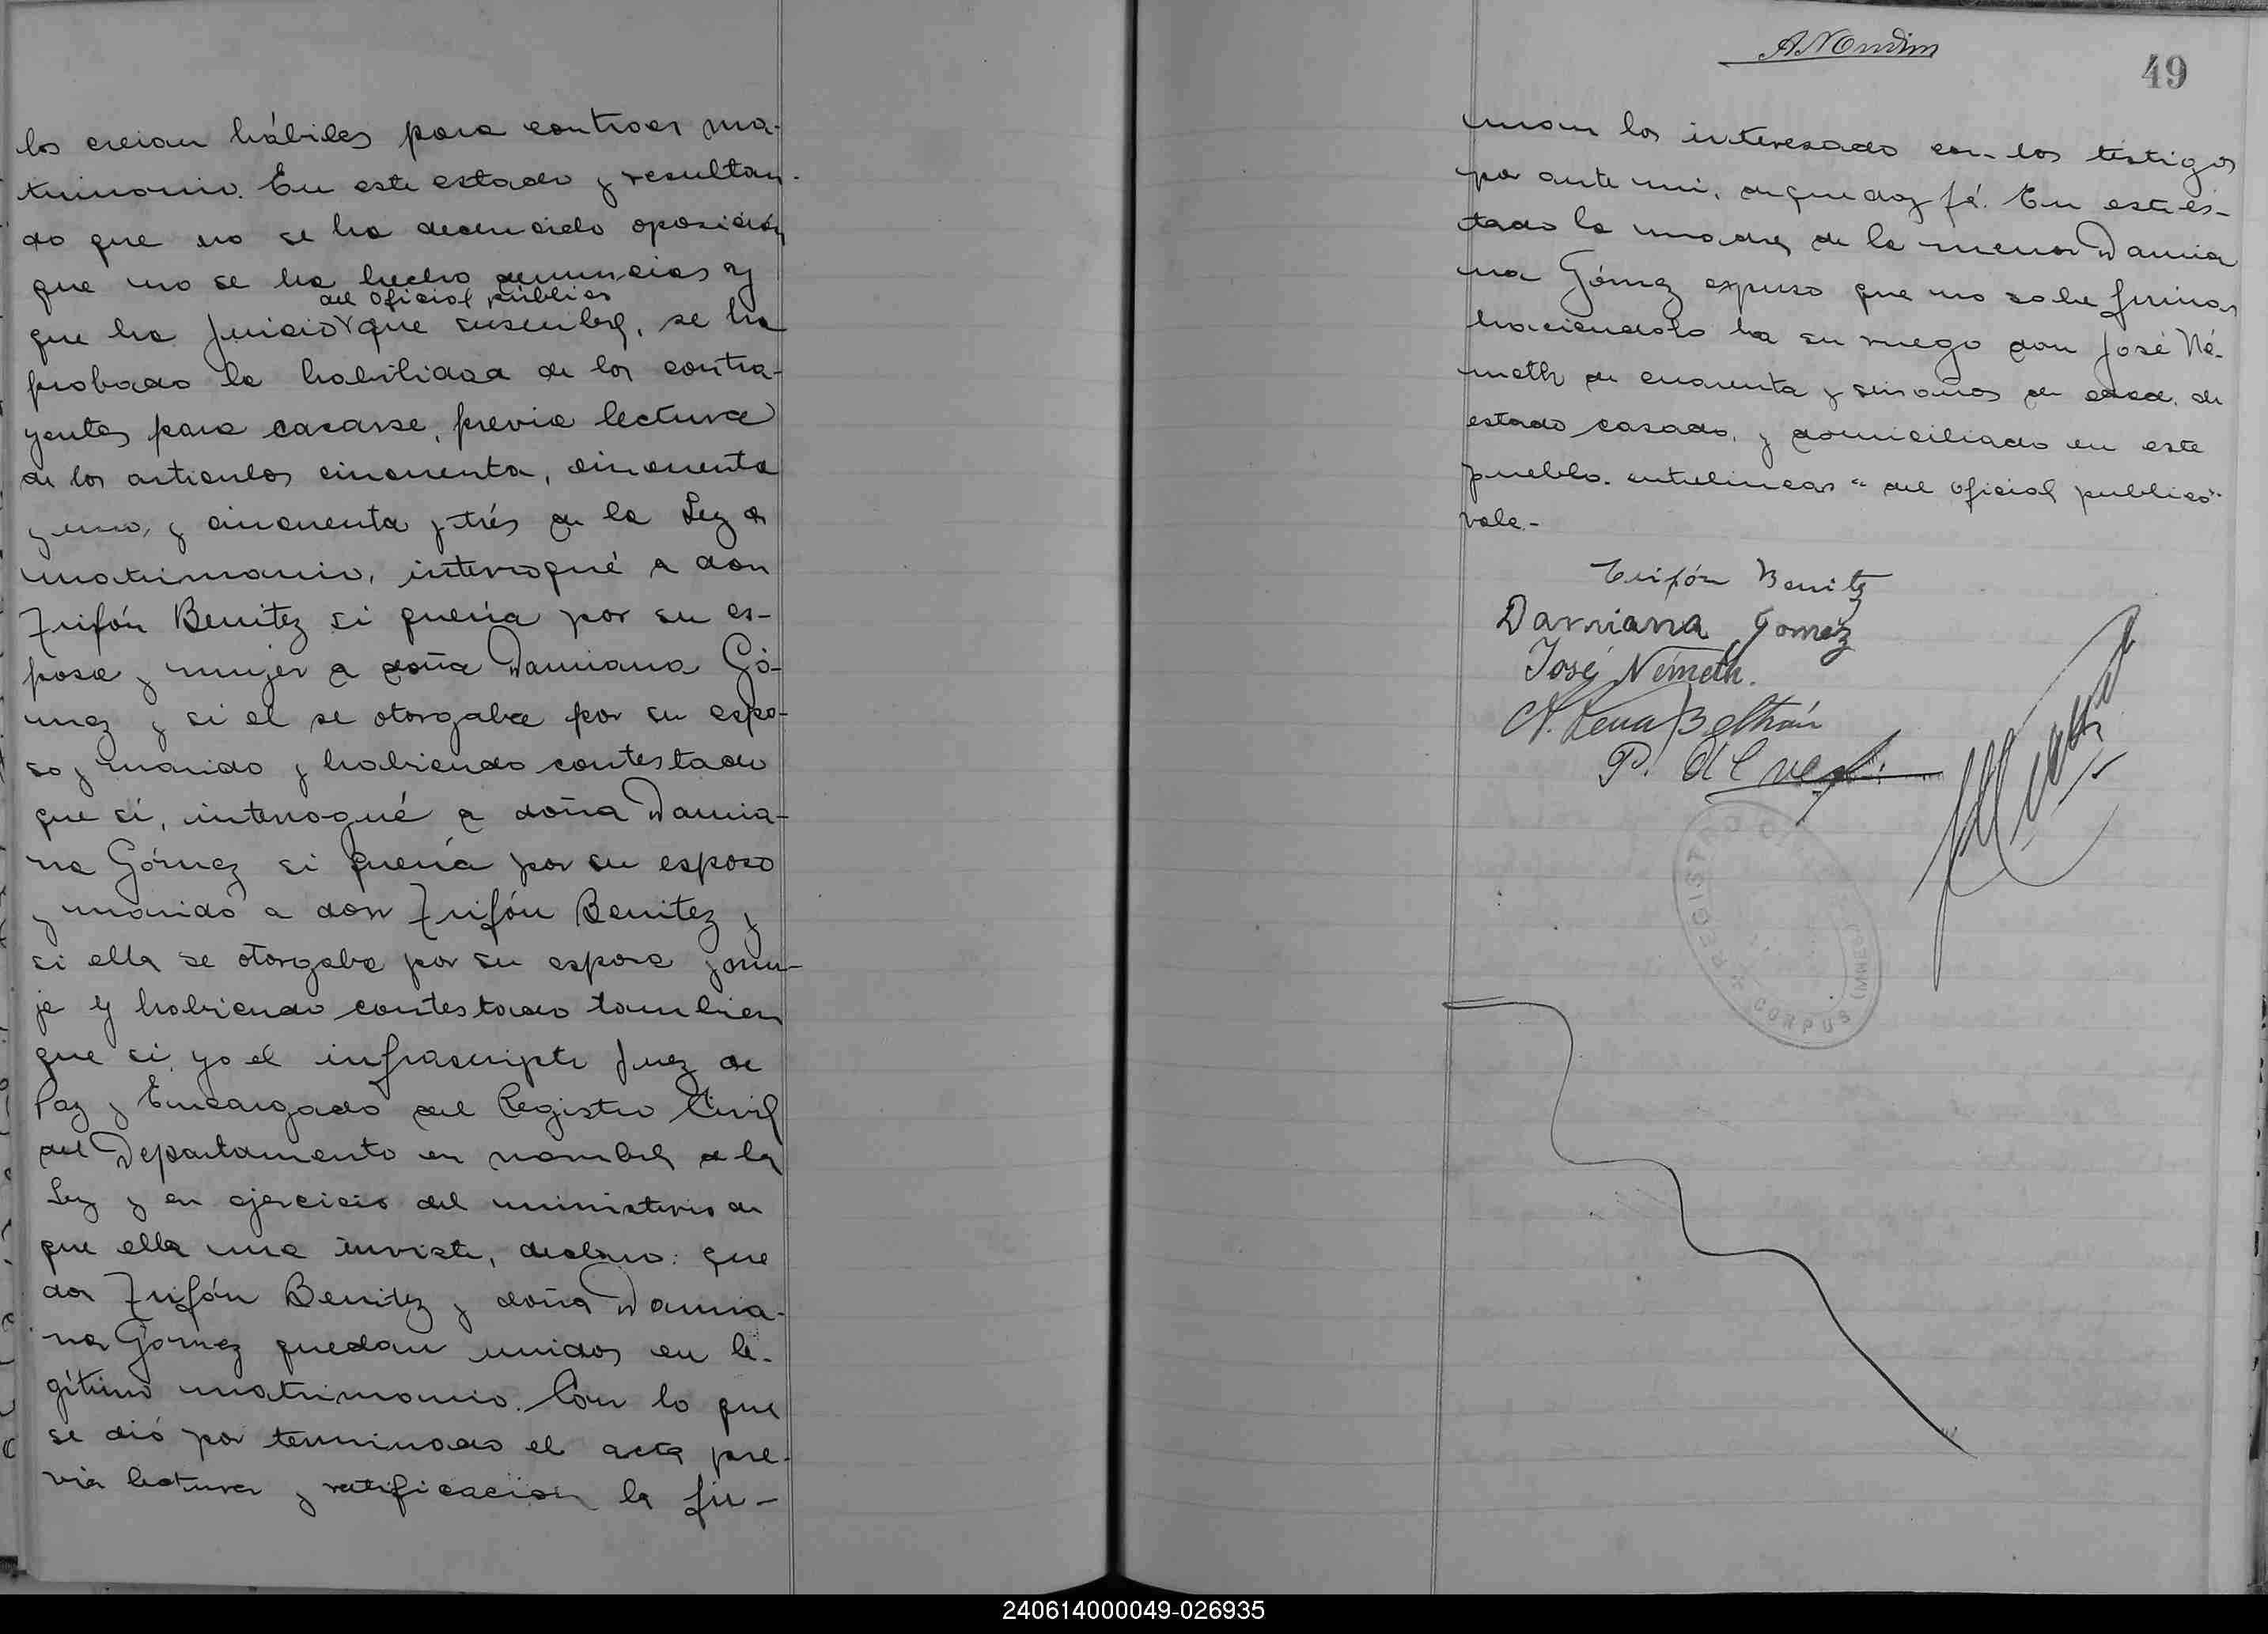 los creian hábiles para contraer ma-
trimonio. En este estado y resultan-
do que no se ha deducido oposición
que no se ha hecho denuncias y
del oficial público
que ha juicio que suscribe, se ha
probado la habilidad de los contra-
yentes para casarse, previa lectura
de los articulos cincuenta, cincuenta
y uno, y cincuenta y trés de la Ley de
matrimonio, interrogué a don
Trifón Benitez si quería por su es-
posa y mujer a doña Damiana Gó-
mez y si el se otorgaba por su espo-
so y marido y habiendo contestado
que sí, interrogué a doña Damia-
na Gómez si quería por su esposo
y marido a don Trifón Benitez y
si ella se otorgaba por su esposa y mu-
je y habiendo contestado tambien
que si, yo el infrascripto Juez de
Paz y Encargado del Registro Civil
del Departamento en nombre de la
Ley y en ejercicio del ministerio de
que ella me inviste, declaro: que
don Trifón Benitez y doña Damia-
na Gómez quedan unidos en le-
gítimo matrimonio. Con lo que
se dió por terminado el acta pre-
via lectura y ratificacion la fir-
49
man los interesado con los testigos
por ante mi, de que doy fé. En este es-
tado la madre de la menor Damia
na Gómez expuso que no sabe firmar
haciendolo ha su ruego don José Né-
meth de cuarenta y seis años de edad, de
estado casado, y domiciliado en este
pueblo. entrelineas "del oficial publico"
vale.-
Trifón Benitez
Damiana Gomez
José Németh.
Beltrán
P.
REGISTRO CIVIL
CORPUS (MNES)
240614000049-026935